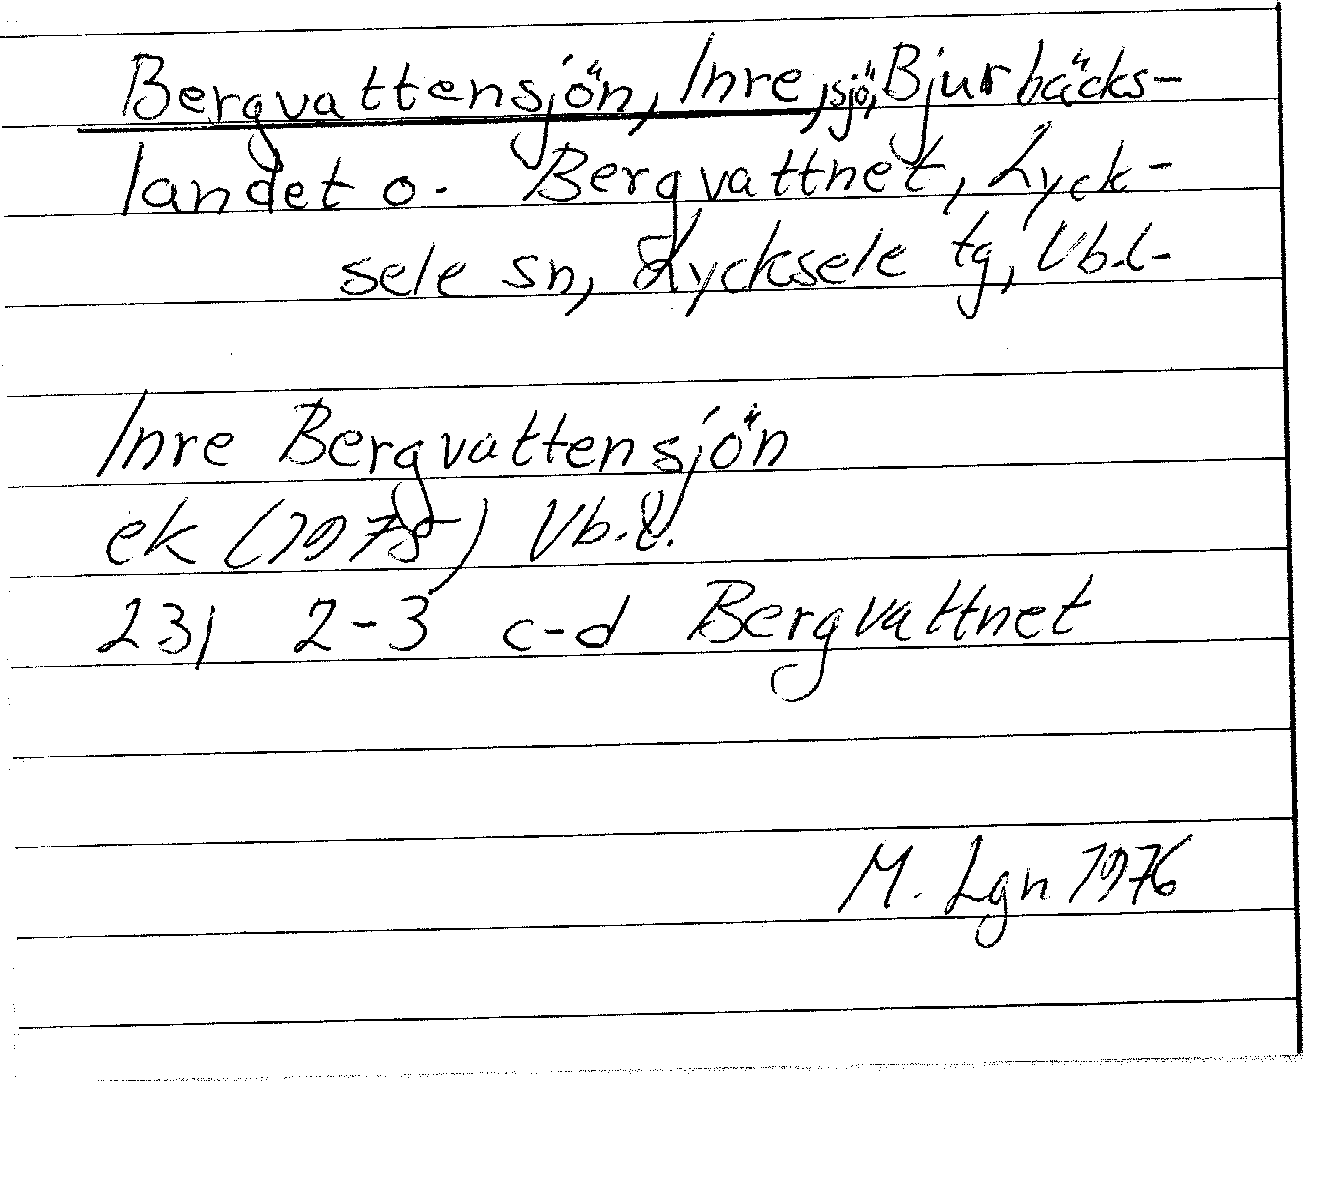 Bergvattensjön, Inre, sjö, Bjurbäcks-
landet o. Bergvattnet, Lyck-
sele sn, Lycksele tg, Vb.l.
Inre Bergvattensjön
ek (1975) Vb.l.
23I 2-3 c-d Bergvattnet
M. Lgn 1976